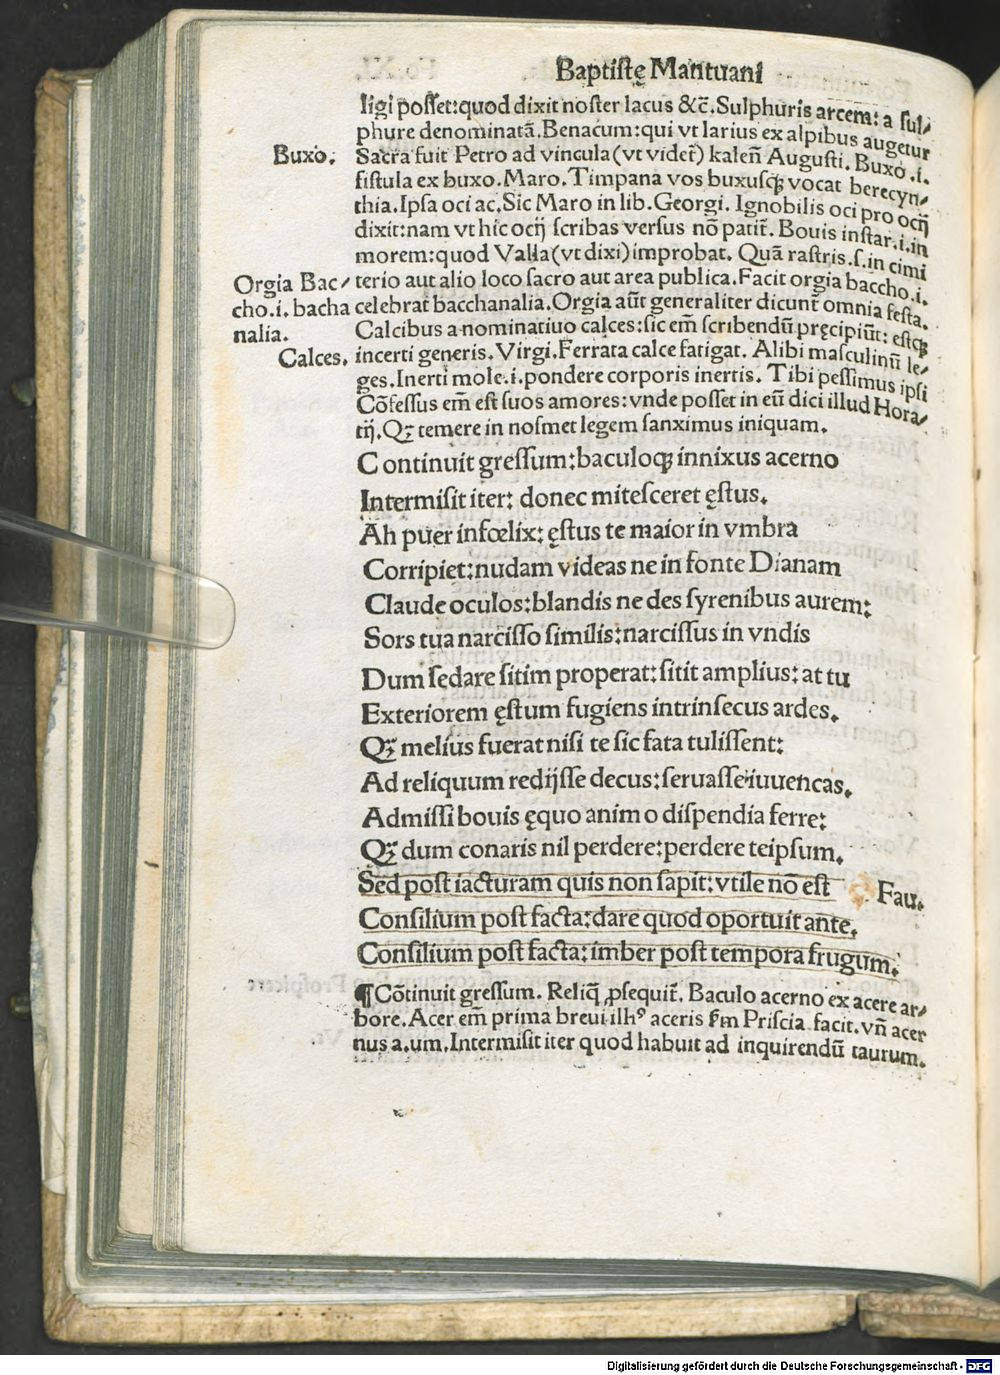 Baptistę Mantuani
ligi posset:quod dixit noster lacus &c̄. Sulphuris arcem: a sul/
phure denominatā. Benacum:qui vt larius ex alpibus augetur
Buxo. Sacra fuit Petro ad vincula(vt videt᷑) kaleñ Augusti. Buxo .i.
fistula ex buxo. Maro. Timpana vos buxusqꝫ vocat berecyn/
thia. Ipsa oci ac. Sic Maro in lib. Georgi. Ignobilis oci pro ocij
dixit:nam vt hic ocij scribas versus nō patit᷑. Bouis instar.i.in
morem:quod Valla(vt dixi)improbat. Quā rastris.s.in cimi
Orgia Bac/ terio aut alio loco sacro aut area publica. Facit orgia baccho.i.
cho.i. bacha celebrat bacchanalia. Orgia aūt generaliter dicunt᷑ omnia festa.
nalia. Calcibus a nominatiuo calces:sic em̄ scribendū pręcipiūt: estqꝫ
Calces. incerti generis. Virgi. Ferrata calce fatigat. Alibi masculinū le/
ges. Inerti mole.i.pondere corporis inertis. Tibi pessimus ipsi
Cōfessus em̄ est suos amores:vnde posset in eū dici illud Hora/
tij. Qꝫ temere in nosmet legem sanximus iniquam.
Continuit gressum:baculoqꝫ innixus acerno
Intermisit iter: donec mitesceret ęstus.
Ah puer infœlix: ęstus te maior in vmbra
Corripiet:nudam videas ne in fonte Dianam
Claude oculos:blandis ne des syrenibus aurem:
Sors tua narcisso similis:narcissus in vndis
Dum sedare sitim properat:sitit amplius:at tu
Exteriorem ęstum fugiens intrinsecus ardes.
Qꝫ melius fuerat nisi te sic fata tulissent:
Ad reliquum redijsse decus:seruasse iuuencas.
Admissi bouis ęquo animo dispendia ferre:
Qꝫ dum conaris nil perdere:perdere teipsum.
Sed post iacturam quis non sapit:vtile nō est Fau.
Consilium post facta:dare quod oportuit ante.
Consilium post facta:imber post tempora frugum.
¶ Cōtinuit gressum. Reliq̄ ꝓsequit᷑. Baculo acerno ex acere ar/
bore. Acer em̄ prima breui illꝰ aceris s̄m Priscia. facit. vñ acer
nus a.um. Intermisit iter quod habuit ad inquirendū taurum.
Digitalisierung gefördert durch die Deutsche Forschungsgemeinschaft - DFG